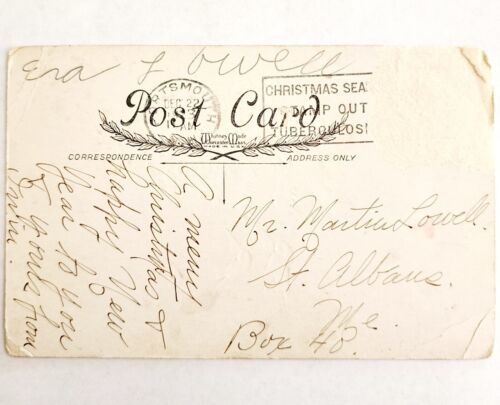 Era L Lowell
PORTSMOUTH
DEC 22
AM
CHRISTMAS SEA
STAMP OUT
TUBERCULOSI
Post Card
Whitney Made
Worcester, Mass.
MADE IN U.S.A.
CORRESPONDENCE
ADDRESS ONLY
A merry
Christmas &
happy New
Year to you
& yours from
Mr. Martin Lowell.
St. Albans.
Me.
Box 48.